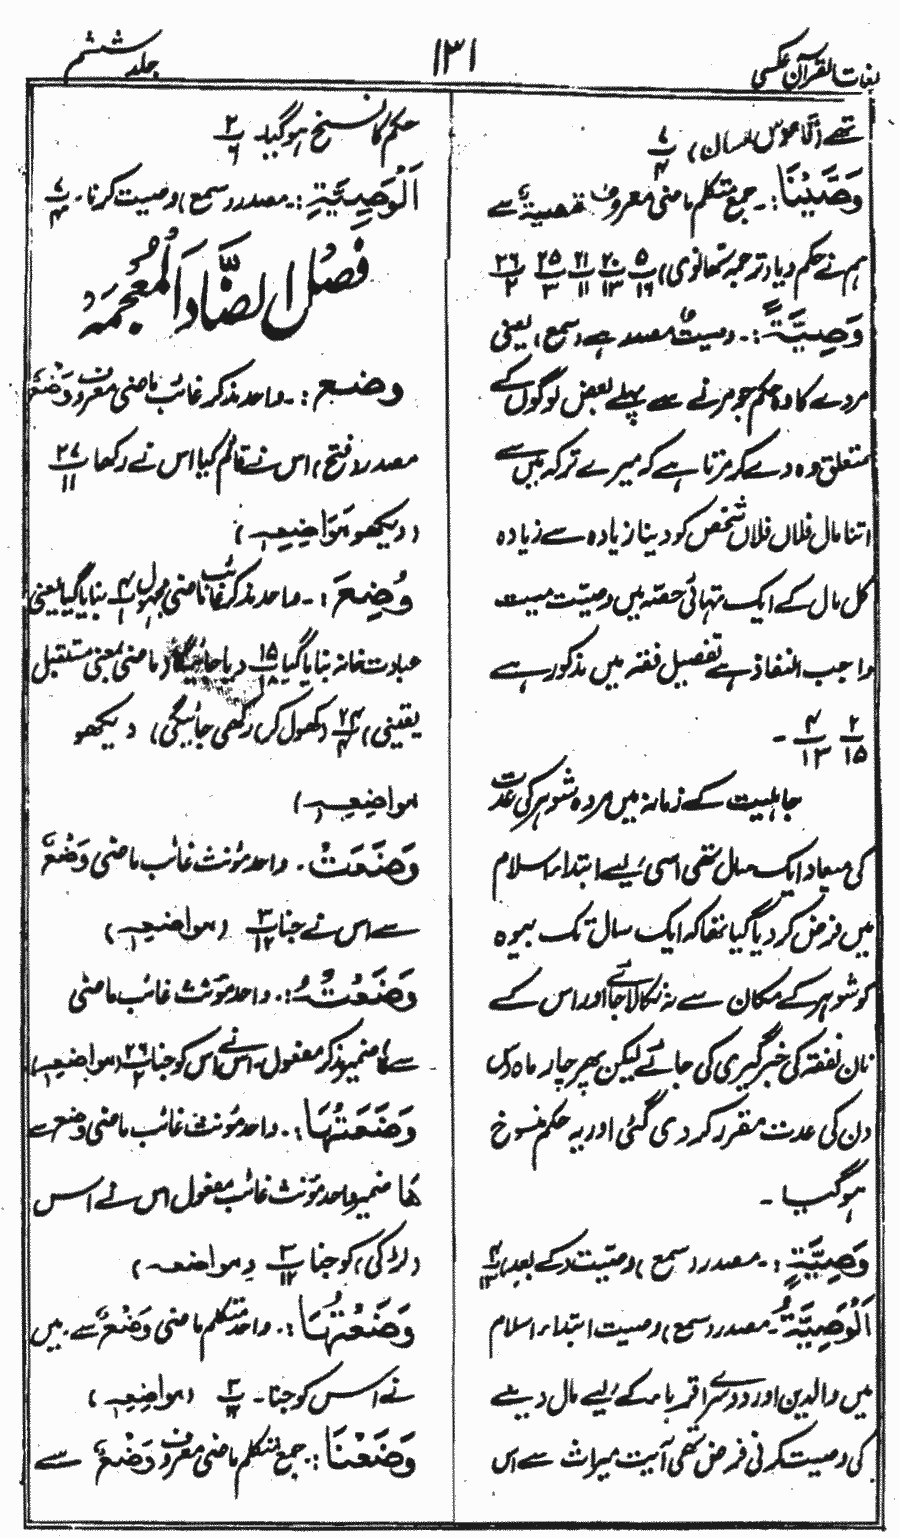 لغات القرآن عکسی
۱۳۱
جلد ششم
تھے (تاموس لسان) ۷/۴
وَصَّیْنَا:۔ جمع متکلم ماضی معروف تَوصِیَۃٌ سے
ہم نے حکم دیا (ترجمہ تھانوی) ۵/۱۶ ۲۰/۱۳ ۲۱/۱۱ ۲۵/۳ ۲۶/۲
وَصِیَّۃً:۔ وصیتٌ مصدر ہے (سمع) یعنی
مردے کا وہ حکم جو مرنے سے پہلے بعض لوگوں کے
متعلق وہ دے کر مرتا ہے کہ میرے ترکہ میں سے
اتنا مال فلاں فلاں شخص کو دینا زیادہ سے زیادہ
کل مال کے ایک تہائی حصہ میں وصیّت میت
واجب النفاذ ہے تفصیل فقہ میں مذکور ہے
۲/۱۵ ۴/۱۳ ۔
جاہلیت کے زمانہ میں مردہ شوہر کی عدت
کی میعاد ایک سال تھی اسی لیے ابتداء اسلام
میں فرض کر دیا گیا تھا کہ ایک سال تک بیوہ
کو شوہر کے مکان سے نہ نکالا جائے اور اس کے
نان نفقہ کی خبر گیری کی جائے لیکن پھر چار ماہ دس
دن کی عدت مقرر کر دی گئی اور یہ حکم منسوخ
ہو گیا ۔
وَصِیَّۃٍ:۔ مصدر (سمع) وصیّت (کے بعد) ۴/۱۳
اَلْوَصِیَّۃُ:۔ مصدر (سمع) وصیت ابتداء اسلام
میں والدین اور دوسرے اقرباء کے لیے مال دینے
کی وصیت کرنی فرض تھی آیت میراث سے اس
حکم کا نسخ ہو گیا۔ ۲/۶
اَلْوَصِیَّۃِ:۔ مصدر (سمع) وصیت کرنا۔ ۷/۴
فصل الضاد المعجمۃ
وضع:۔ واحد مذکر غائب ماضی معروف وَضْعٌ
مصدر (فتح) اس نے قائم کیا اس نے رکھا ۲۷/۱۱
(دیکھو مَوَاضِعِہٖ)
وُضِعَ:۔ واحد مذکر غائب ماضی مجہول ۴/۱ بنایا گیا یعنی
عبادت خانہ بنایا گیا ۱۵/۱۸ دیا جائیگا (ماضی بمعنی مستقبل
یقینی) ۲۴/۴ (کھول کر رکھی جائیگی) دیکھو
مواضِعِہٖ)
وَضَعَتْ۔ واحد مؤنث غائب ماضی وَضْعٌ
سے اس نے جنا ۳/۱۲ (مواضعہٖ)
وَضَعَتْہُ:۔ واحد مؤنث غائب ماضی
سے ہٗ ضمیر مذکر مفعول، اس نے اس کو جنا ۲۶/۲ (مواضعہٖ)
وَضَعَتْہَا:۔ واحد مؤنث غائب ماضی وضع سے
ھَا ضمیر واحد مؤنث غائب مفعول اس نے اس
(لڑکی) کو جنا ۳/۱۲ (مواضعہ)
وَضَعْتُہَا:۔ واحد متکلم ماضی وَضْعٌ سے۔ میں
نے اس کو جنا۔ ۳/۱۲ (مواضِعِہٖ)
وَضَعْنَا:۔ جمع متکلم ماضی معروف وَضْعٌ سے